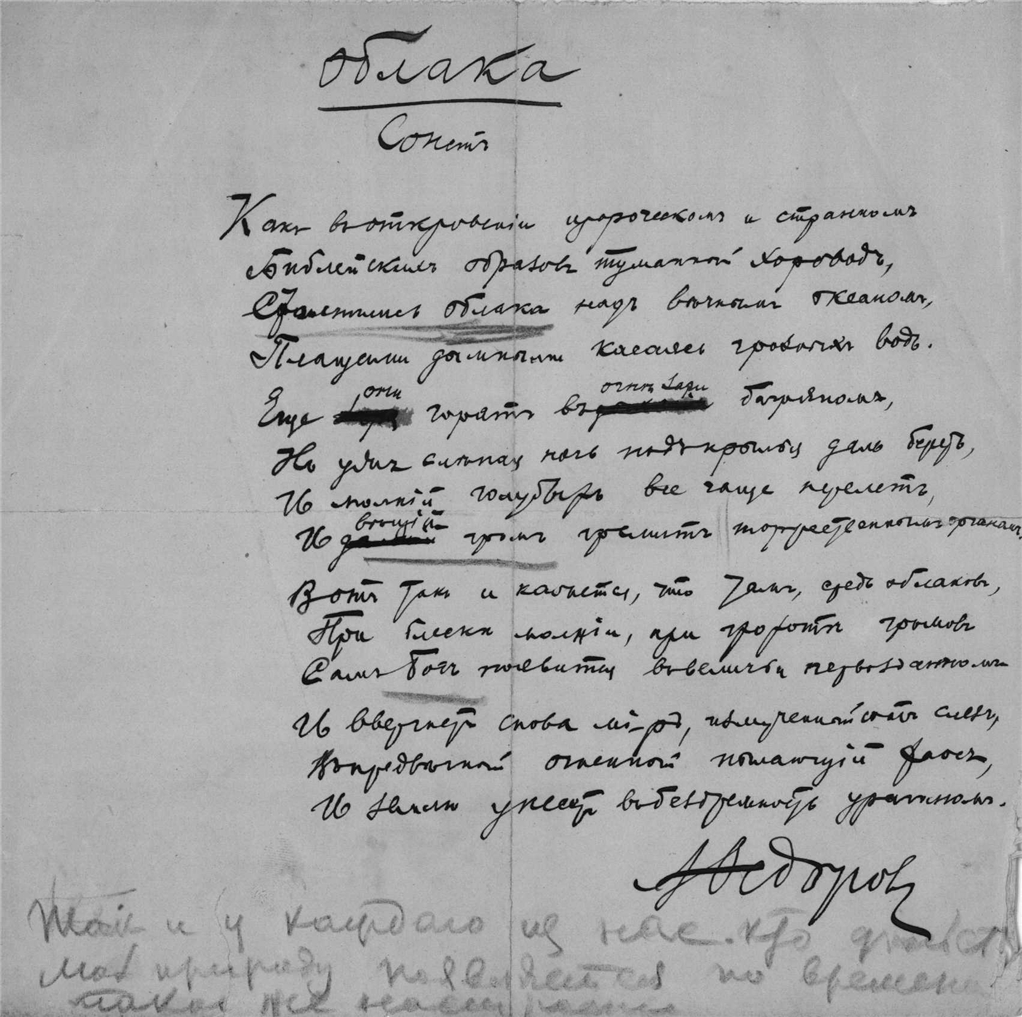 Облака
Сонетъ
Какъ въ откровеніи пророческомъ и странномъ
Библейскихъ образовъ туманный хороводъ,
Столпились облака надъ вѣчнымъ океаномъ,
Плащами дымными касаясь грозныхъ водъ.
Еще они горятъ въ огнѣ зари багряномъ,
Но ужъ слѣпая ночь подъ крылья даль беретъ,
И молній голубыхъ все чаще перелетъ,
И вѣщій громъ гремитъ торжественнымъ органомъ,
Вотъ такъ и кажется, что тамъ, средь облаковъ,
При блескѣ молніи, при грохотѣ громовъ
Самъ Богъ появится въ величьи первозданномъ
И ввергнетъ снова міръ, измученный отъ слезъ,
Въ предвѣчный огненный пылающій хаосъ,
И землю унесетъ въ безбрежность ураганомъ.
А Ѳедоровъ
Такъ и у каждаго из нас. кто
мать природу появляется по времена
такое же